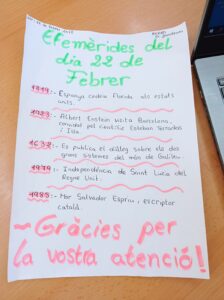 Efemèrides del
dia 22 de
Febrer
1819:- Espanya cedeix Florida als estats
units.
1923:- Albert Einstein visita Barcelona,
convidat pel científic Esteban Terradas
i Illa.
1632:- Es publica el diàleg sobre els dos
grans sistemes del món de Galileu.
1979:- Independència de Santa Lucia del
Regne Unit.
1985:- Mor Salvador Espriu, escriptor
català.
~Gràcies per
la vostra atenció!